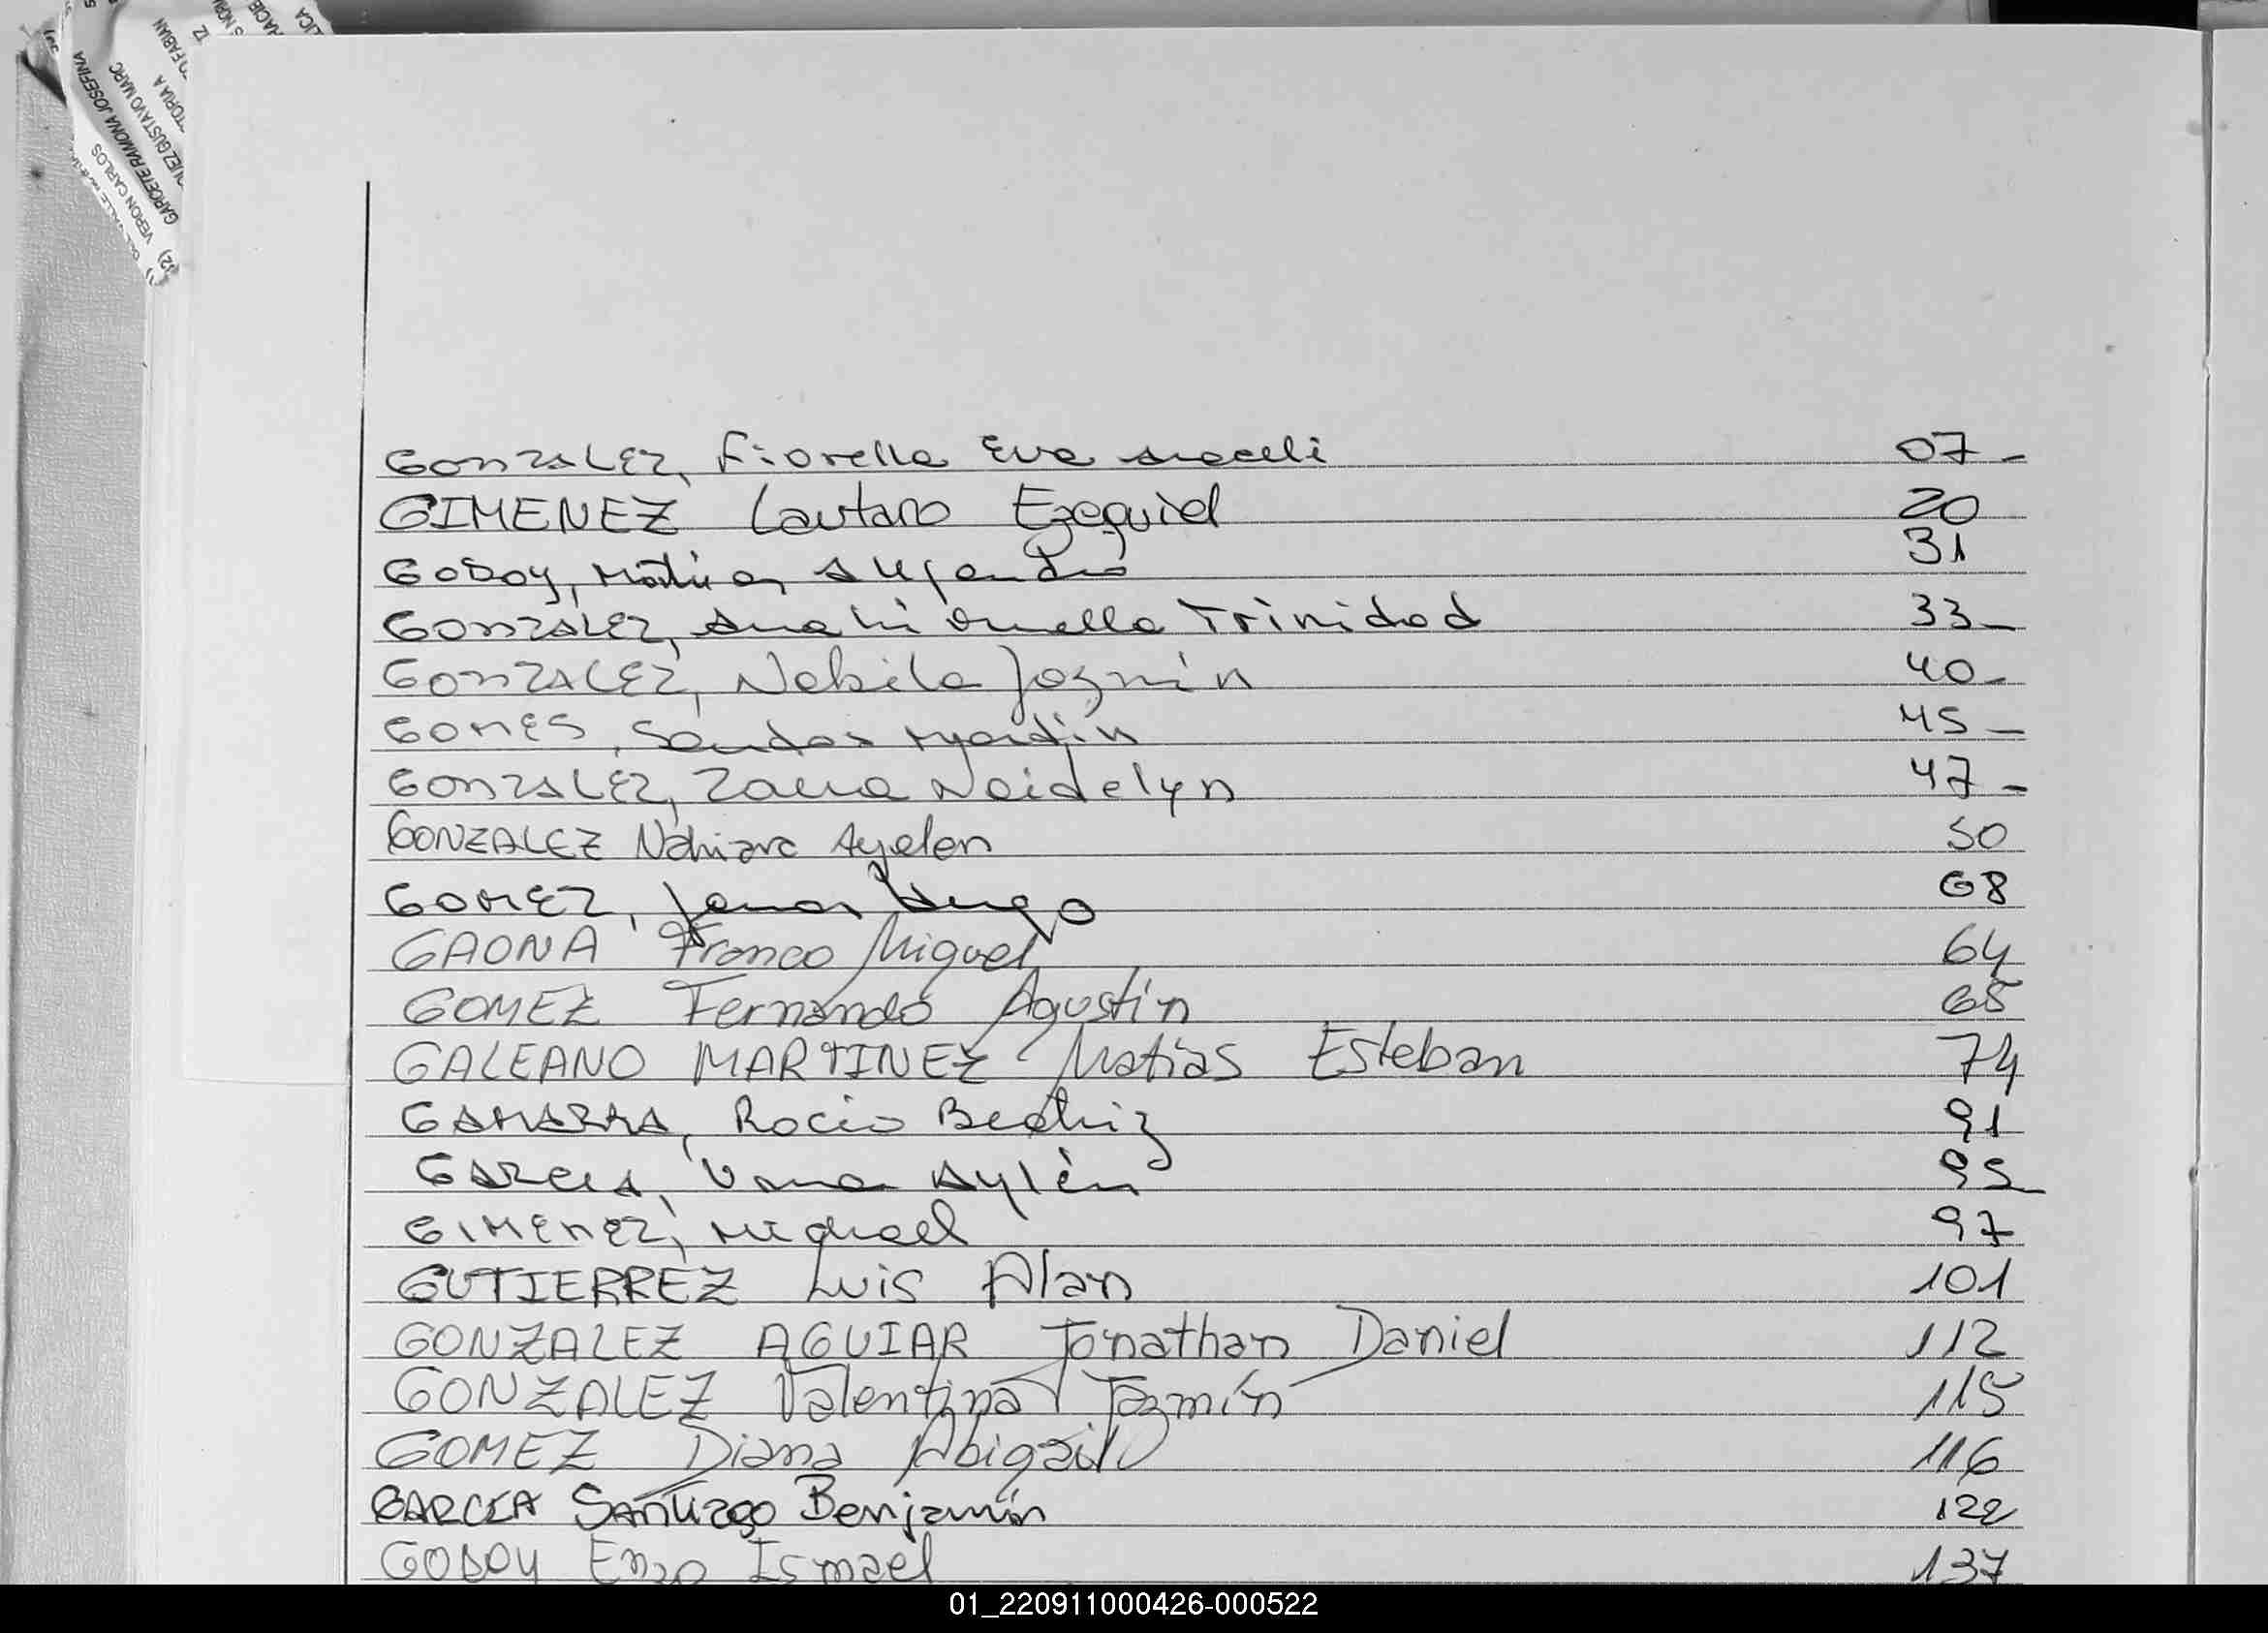 LICA
GARCETE RAMONA JOSEFINA
VERON CARLOS
GONZALEZ, Fiorella Eva Araceli 07-
GIMENEZ Lautaro Ezequiel 20
GODOY, Matías Alejandro 31
GONZALEZ, Anahi Ornella Trinidad 33-
GONZALEZ, Nabila Jazmín 40-
GOMES, Santos Martín 45-
GONZALEZ, Zaira Naidelyn 47-
GONZALEZ Nahiara Ayelen 50
GOMEZ, Jonas Hugo 68
GAONA Franco Miguel 64
GOMEZ Fernando Agustín 65
GALEANO MARTINEZ Matías Esteban 74
GAMARRA, Rocio Beatriz 91
GARCIA, Uma Aylén 95-
GIMENEZ, Michael 97
GUTIERREZ Luis Alan 101
GONZALEZ AGUIAR Jonathan Daniel 112
GONZALEZ Valentina Jazmín 115
GOMEZ Diana Abigail 116
GARCIA Santiago Benjamín 122
GODOY Enzo Ismael 137
01_220911000426-000522